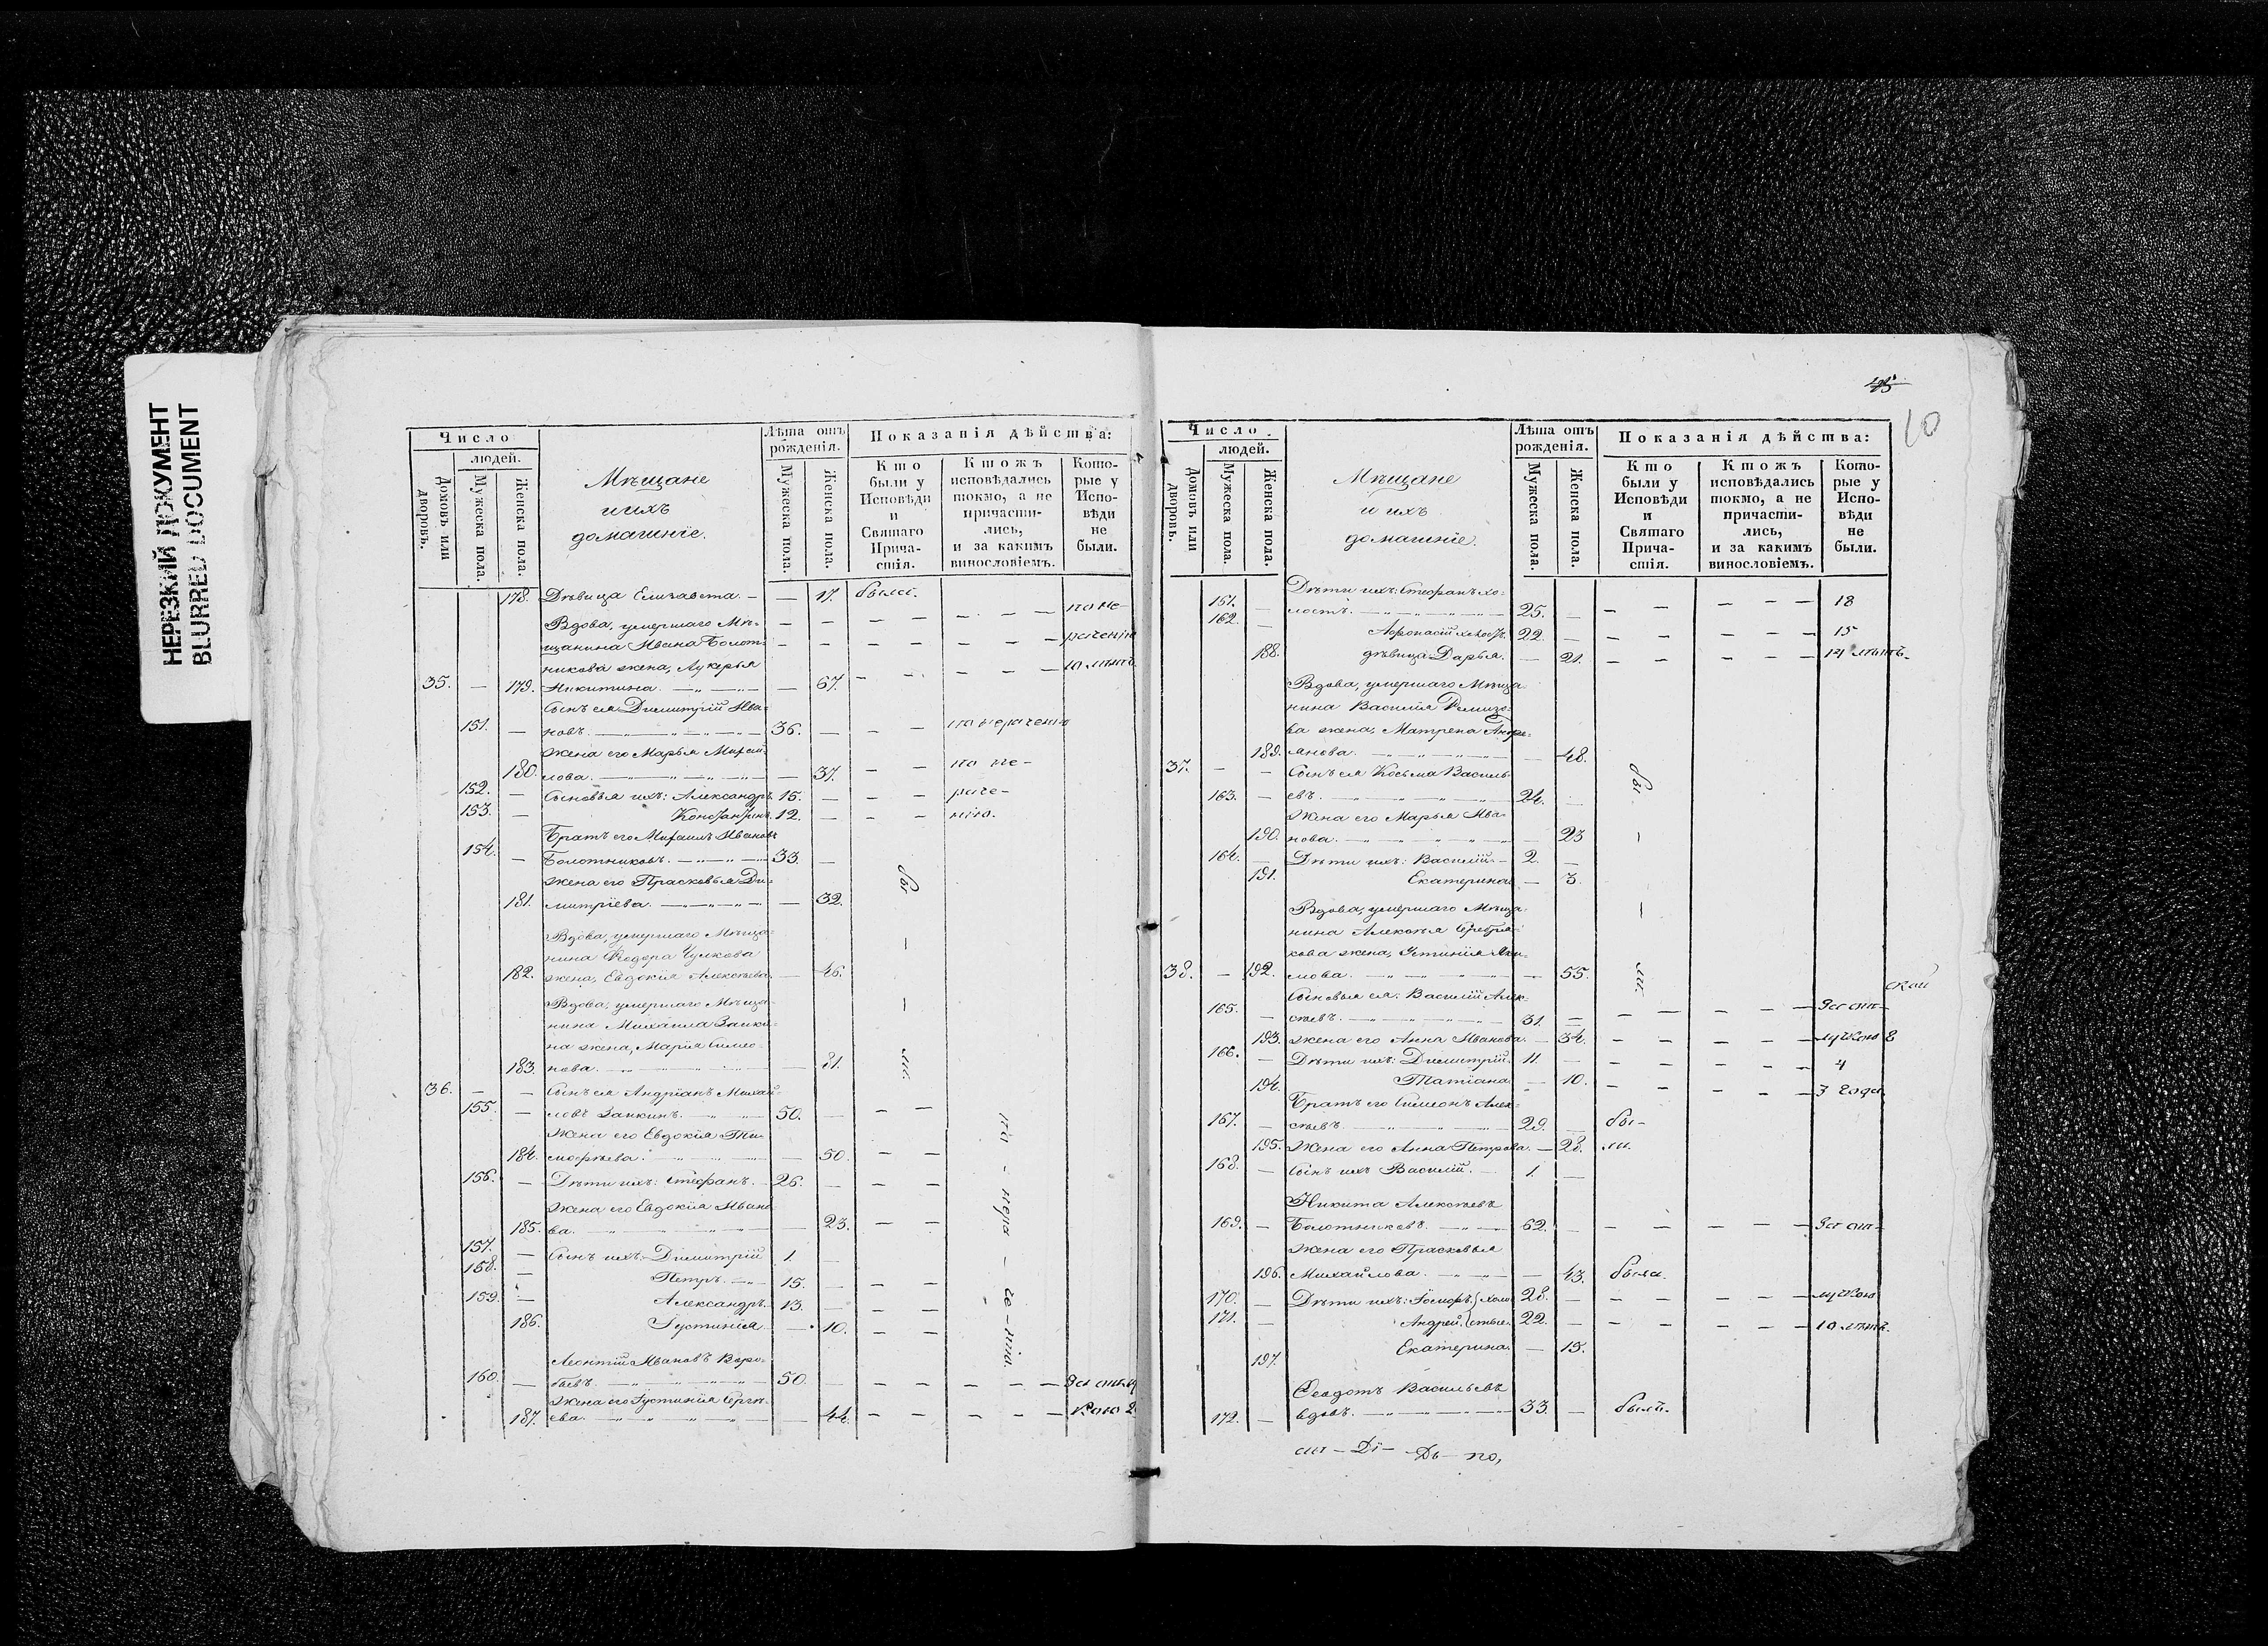 НЕРЕЗКИЙ ДОКУМЕНТ
BLURRED DOCUMENT
Число
людей.
Домовъ или дворовъ.
Мужеска пола.
Женска пола.
Мѣщане
и ихъ
домашніе.
Лѣта отъ
рожденія.
Мужеска пола.
Женска пола.
Показанія дѣйства:
Кто
были у
Исповѣди
и
Святаго
Прича-
стія.
Ктожъ
исповѣдались
токмо, а не
причасти-
лись,
и за какимъ
винословіемъ.
Кото-
рые у
Испо-
вѣди
не
были.
178. Дѣвица Елизавета. — — 17. была.
Вдова, умершаго Мѣ- — — — — — — — — по не-
щанина Ивана Болот- — — — — — — — — раченію
никова жена, Лукерья — — — — — — 10 лѣтъ
35. — 179. Никитина. — 67.
Сынъ ея Димитрій Ива-
151. — новъ. 36. — — — по нераченію
Жена его Марья Михай-
180. лова. — 37. — — по не-
152. — Сыновья ихъ: Александръ. 15. — — — раче-
153. — Константинъ. 12. — — — нію.
Братъ его Михаилъ Ивановъ
154. — Болотниковъ. 33. —
Жена его Прасковья Ди-
181. митріева. — 32. бы
Вдова, умершаго Мѣща-
нина Ѳедора Чулкова
182. жена, Евдокія Алексѣева. — 46.
Вдова, умершаго Мѣща-
нина Михаила Заики-
на жена, Марія Симео-
183. нова. — 81. ли.
36. — — Сынъ ея Андріанъ Михай-
155. — ловъ Заикинъ. 50. — — —
Жена его Евдокія Ти-
184. моѳѣева. — 50. — — по - нера - че - нію.
156. — Дѣти ихъ: Стефанъ. 26. — — —
Жена его Евдокія Ивано
185. ва. — 23. — —
157. — Сынъ ихъ: Димитрій 1. —
158. — Петръ. 15. — — —
159. — Александръ. 13. — —
186. Іустинія — 10. — —
Леонтій Ивановъ Воро-
160. — бьевъ. 50. — — — — — — За отлу
Жена его Іустинія Сергѣ-
187. ева. — 44. — — — — — кою 2
10
Число
людей.
Домовъ или дворовъ.
Мужеска пола.
Женска пола.
Мѣщане
и ихъ
домашніе.
Лѣта отъ
рожденія.
Мужеска пола.
Женска пола.
Показанія дѣйства:
Кто
были у
Исповѣди
и
Святаго
Прича-
стія.
Ктожъ
исповѣдались
токмо, а не
причасти-
лись,
и за какимъ
винословіемъ.
Кото-
рые у
Испо-
вѣди
не
были.
Дѣти ихъ: Стефанъ хо-
161. — лостъ. 25. — — — — — — 18
162. — Аѳонасій холостъ. 22. — — — — — — 15
188. дѣвица Дарья. — 21. — — — — — 14 лѣтъ.
Вдова, умершаго Мѣща-
нина Василія Ремизо-
ва жена, Матрена Андре-
189. янова. — 48.
37. — — Сынъ ея Косьма Василь-
163. — евъ. 24. — бы
Жена его Марья Ива-
190. нова. — 23
164. — Дѣти ихъ: Василій. 2. —
191. Екатерина. — 3.
Вдова, умершаго Мѣща-
нина Алексѣя Серебря-
кова жена, Устинія Яки-
38. — 192. мова. — 55. ли.
Сыновья ея: Василій Алек-
165. — сѣевъ. 31. — — — — — — За от-
193. Жена его Анна Иванова. — 34. — — — — — лучкою 8
166. — Дѣти ихъ: Димитрій. 11 — — — — — — 4
194. Татіана. — 10. — — — — — 3 года.
Братъ его Симеонъ Алек-
167. — сѣевъ. 29. — бы-
195. Жена его Анна Петрова. — 28. ли.
168. — Сынъ ихъ Василій. 1. —
Никита Алексѣевъ
169. — Болотниковъ. 62. — — — — — — За от-
Жена его Прасковья
196. Михайлова. — 43. была.
170. — Дѣти ихъ: холо 28. — — — — — — лучкою
171. — Андрей. стые. 22. — — — — — — 10 лѣтъ.
197. Екатерина. — 15.
Ѳеодотъ Васильевъ
172. — вдовъ. 33. — былъ.